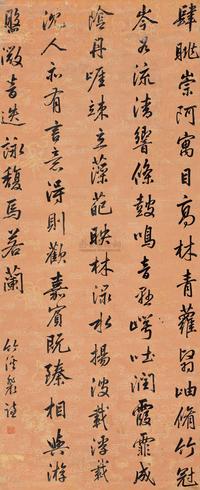 肆眺崇阿寓目高林青蘿翳岫脩竹冠
岑谷流清響條鼓鳴音玄崿吐潤霞霏成
陰丹崖竦立藻葩映林淥水揚波載浮載
沉人亦有言意得則歡嘉賓既臻相與游
盤微音迭詠馥焉若蘭
竹溪